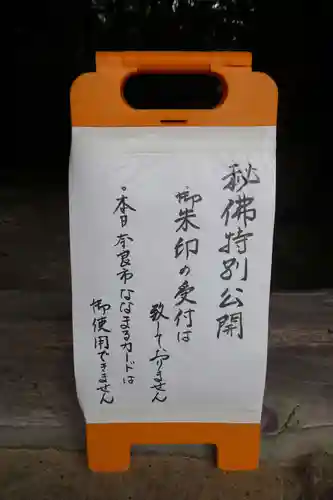 秘佛特別公開
御朱印の受付は
致しておりません
・本日奈良市ななまるカードは
御使用できません